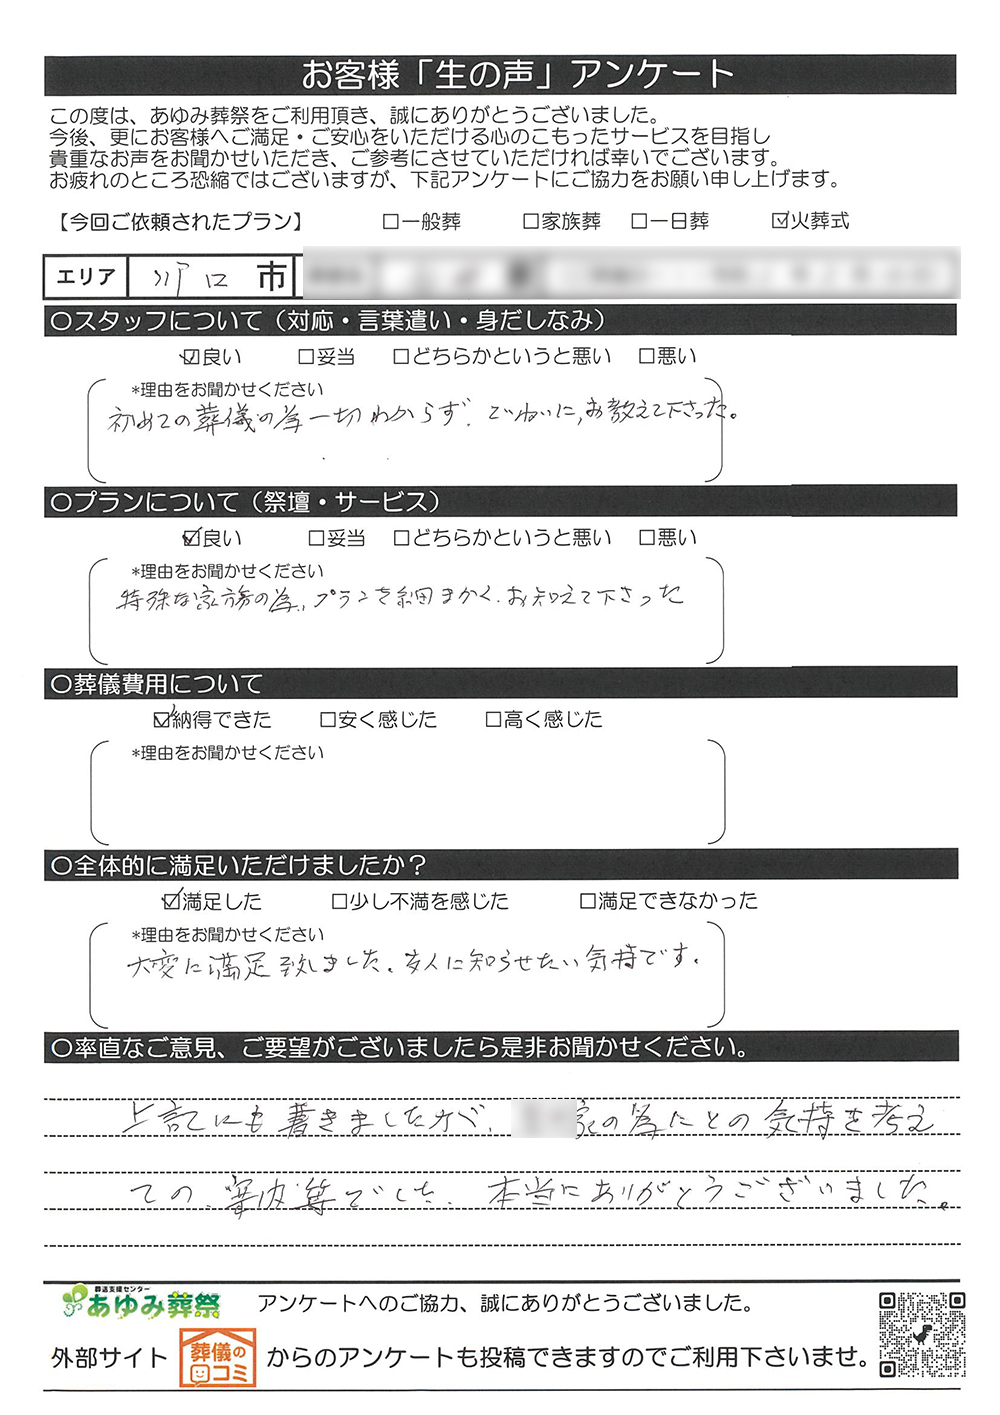 お客様「生の声」アンケート
この度は、あゆみ葬祭をご利用頂き、誠にありがとうございました。
今後、更にお客様へご満足・ご安心をいただける心のこもったサービスを目指し
貴重なお声をお聞かせいただき、ご参考にさせていただければ幸いでございます。
お疲れのところ恐縮ではございますが、下記アンケートにご協力をお願い申し上げます。
【今回ご依頼されたプラン】 □一般葬 □家族葬 □一日葬 ☑火葬式
エリア 川口 市
○スタッフについて（対応・言葉遣い・身だしなみ）
☑良い □妥当 □どちらかというと悪い □悪い
*理由をお聞かせください
初めての葬儀の為一切わからず、ていねいに、お教えて下さった。
○プランについて（祭壇・サービス）
☑良い □妥当 □どちらかというと悪い □悪い
*理由をお聞かせください
特殊な家族の為、プランを細まかく、お知えて下さった
○葬儀費用について
☑納得できた □安く感じた □高く感じた
*理由をお聞かせください
○全体的に満足いただけましたか？
☑満足した □少し不満を感じた □満足できなかった
*理由をお聞かせください
大変に満足致しました。友人に知らせたい気持です。
○率直なご意見、ご要望がございましたら是非お聞かせください。
上記にも書きましたが、家の為にとの気持を考え
ての、等でした、本当にありがとうございました。
葬送支援センター
あゆみ葬祭 アンケートへのご協力、誠にありがとうございました。
外部サイト 葬儀の口コミ からのアンケートも投稿できますのでご利用下さいませ。